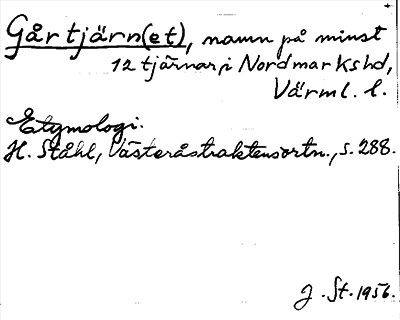 Gårtjärn(et), namn på minst
12 tjärnar i Nordmarks hd,
Värml. l.
Etymologi.
H. Ståhl, Västeråstraktens ortn., s. 288.
J. St. 1956.